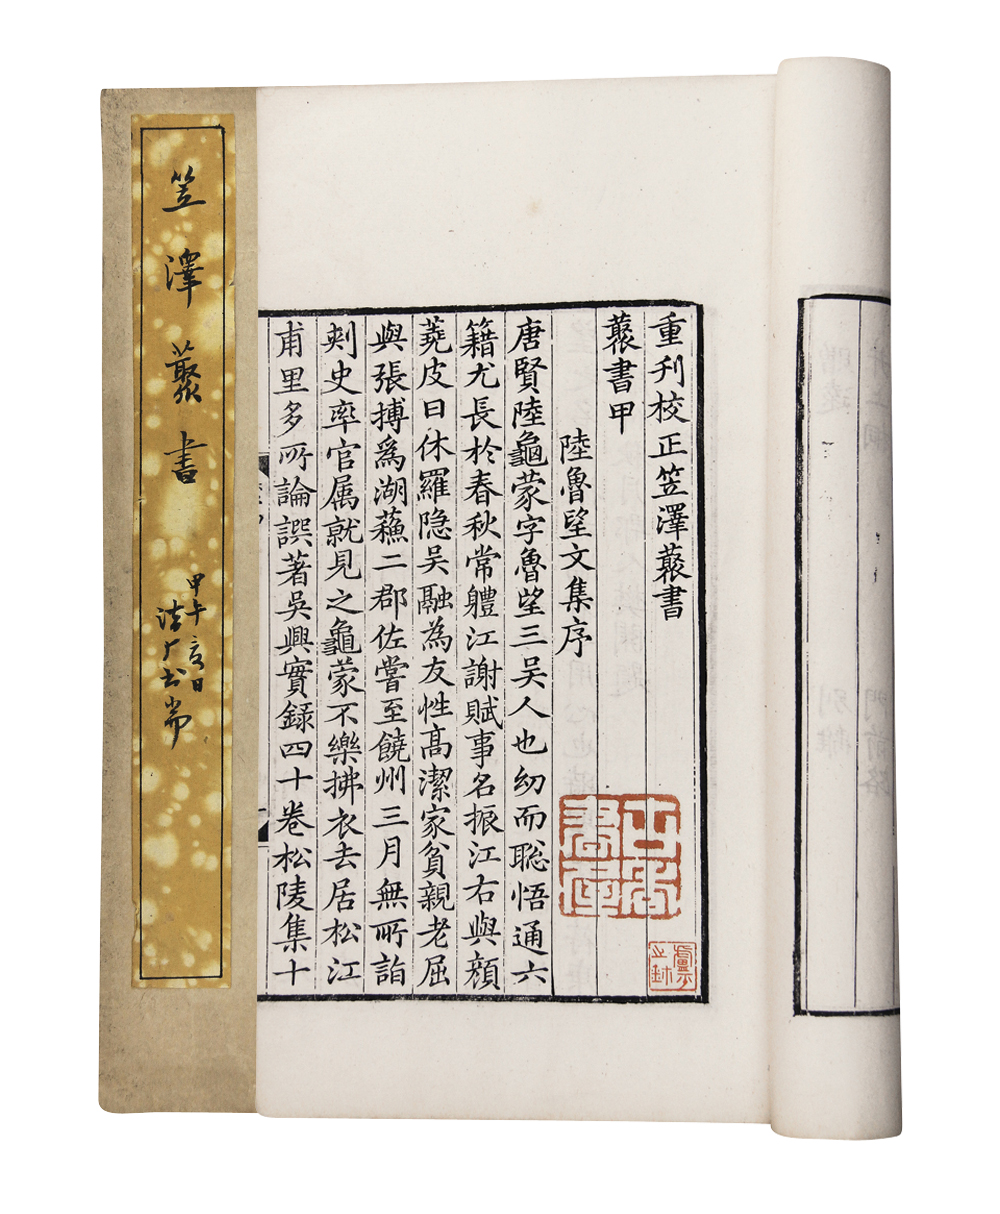 重刊校正笠澤藂書
藂書甲
陸魯望文集序
唐賢陸龜蒙字魯望三吳人也幼而聡悟通六
籍尤長於春秋常體江謝賦事名振江右與顔
蕘皮日休羅隐吴融為友性高潔家貧親老屈
與張摶爲湖蘓二郡佐嘗至饒州三月無所詣
刾史率官属就見之龜蒙不樂拂衣去居松江
甫里多所論譔著吳興實録四十卷松陵集十
笠澤藂書
甲午